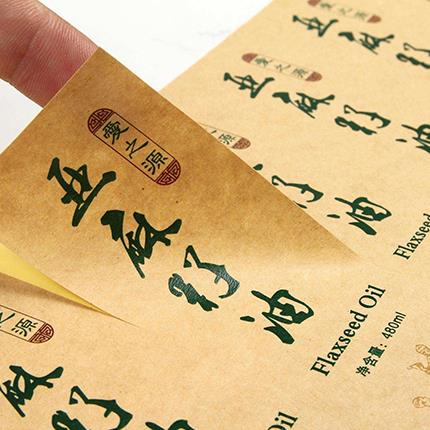 愛之源
亚麻籽油
Flaxseed Oil
净含量：480ml
愛之源
亚麻籽油
Flaxseed
愛之源
亚麻籽油
愛之源
亚麻籽油
Oil